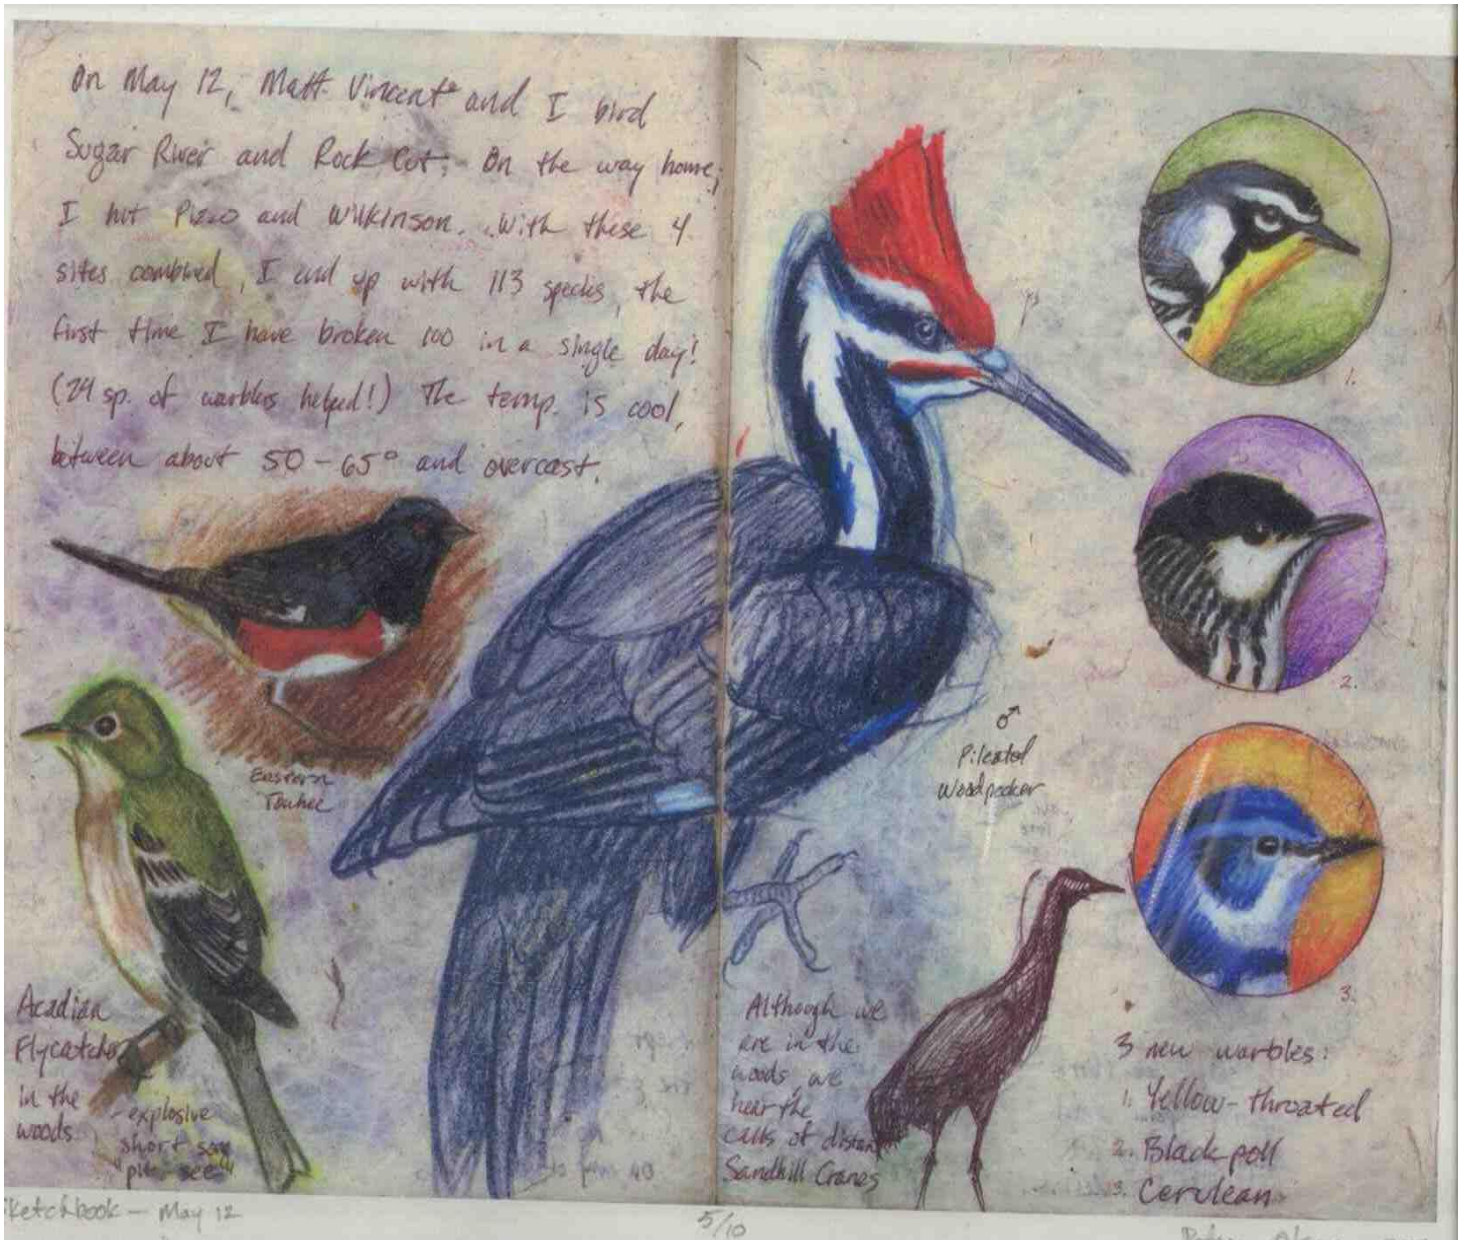 On May 12, Matt Vincent and I bird
Sugar River and Rock Cut. On the way home,
I hit Pizzo and Wilkinson. With these 4
sites combined, I end up with 113 species, the
first time I have broken 100 in a single day!
(24 sp. of warblers helped!) The temp. is cool,
between about 50-65° and overcast.
Eastern
Towhee
♂
Pileated
Woodpecker
1.
2.
3.
Acadian
Flycatcher
in the
woods
- explosive
short
see"
Although we
are in the
woods, we
hear the
calls of distant
Sandhill Cranes
3 new warbles:
1. Yellow-throated
2. Blackpoll
3. Cerulean
Sketchbook - May 12
5/10